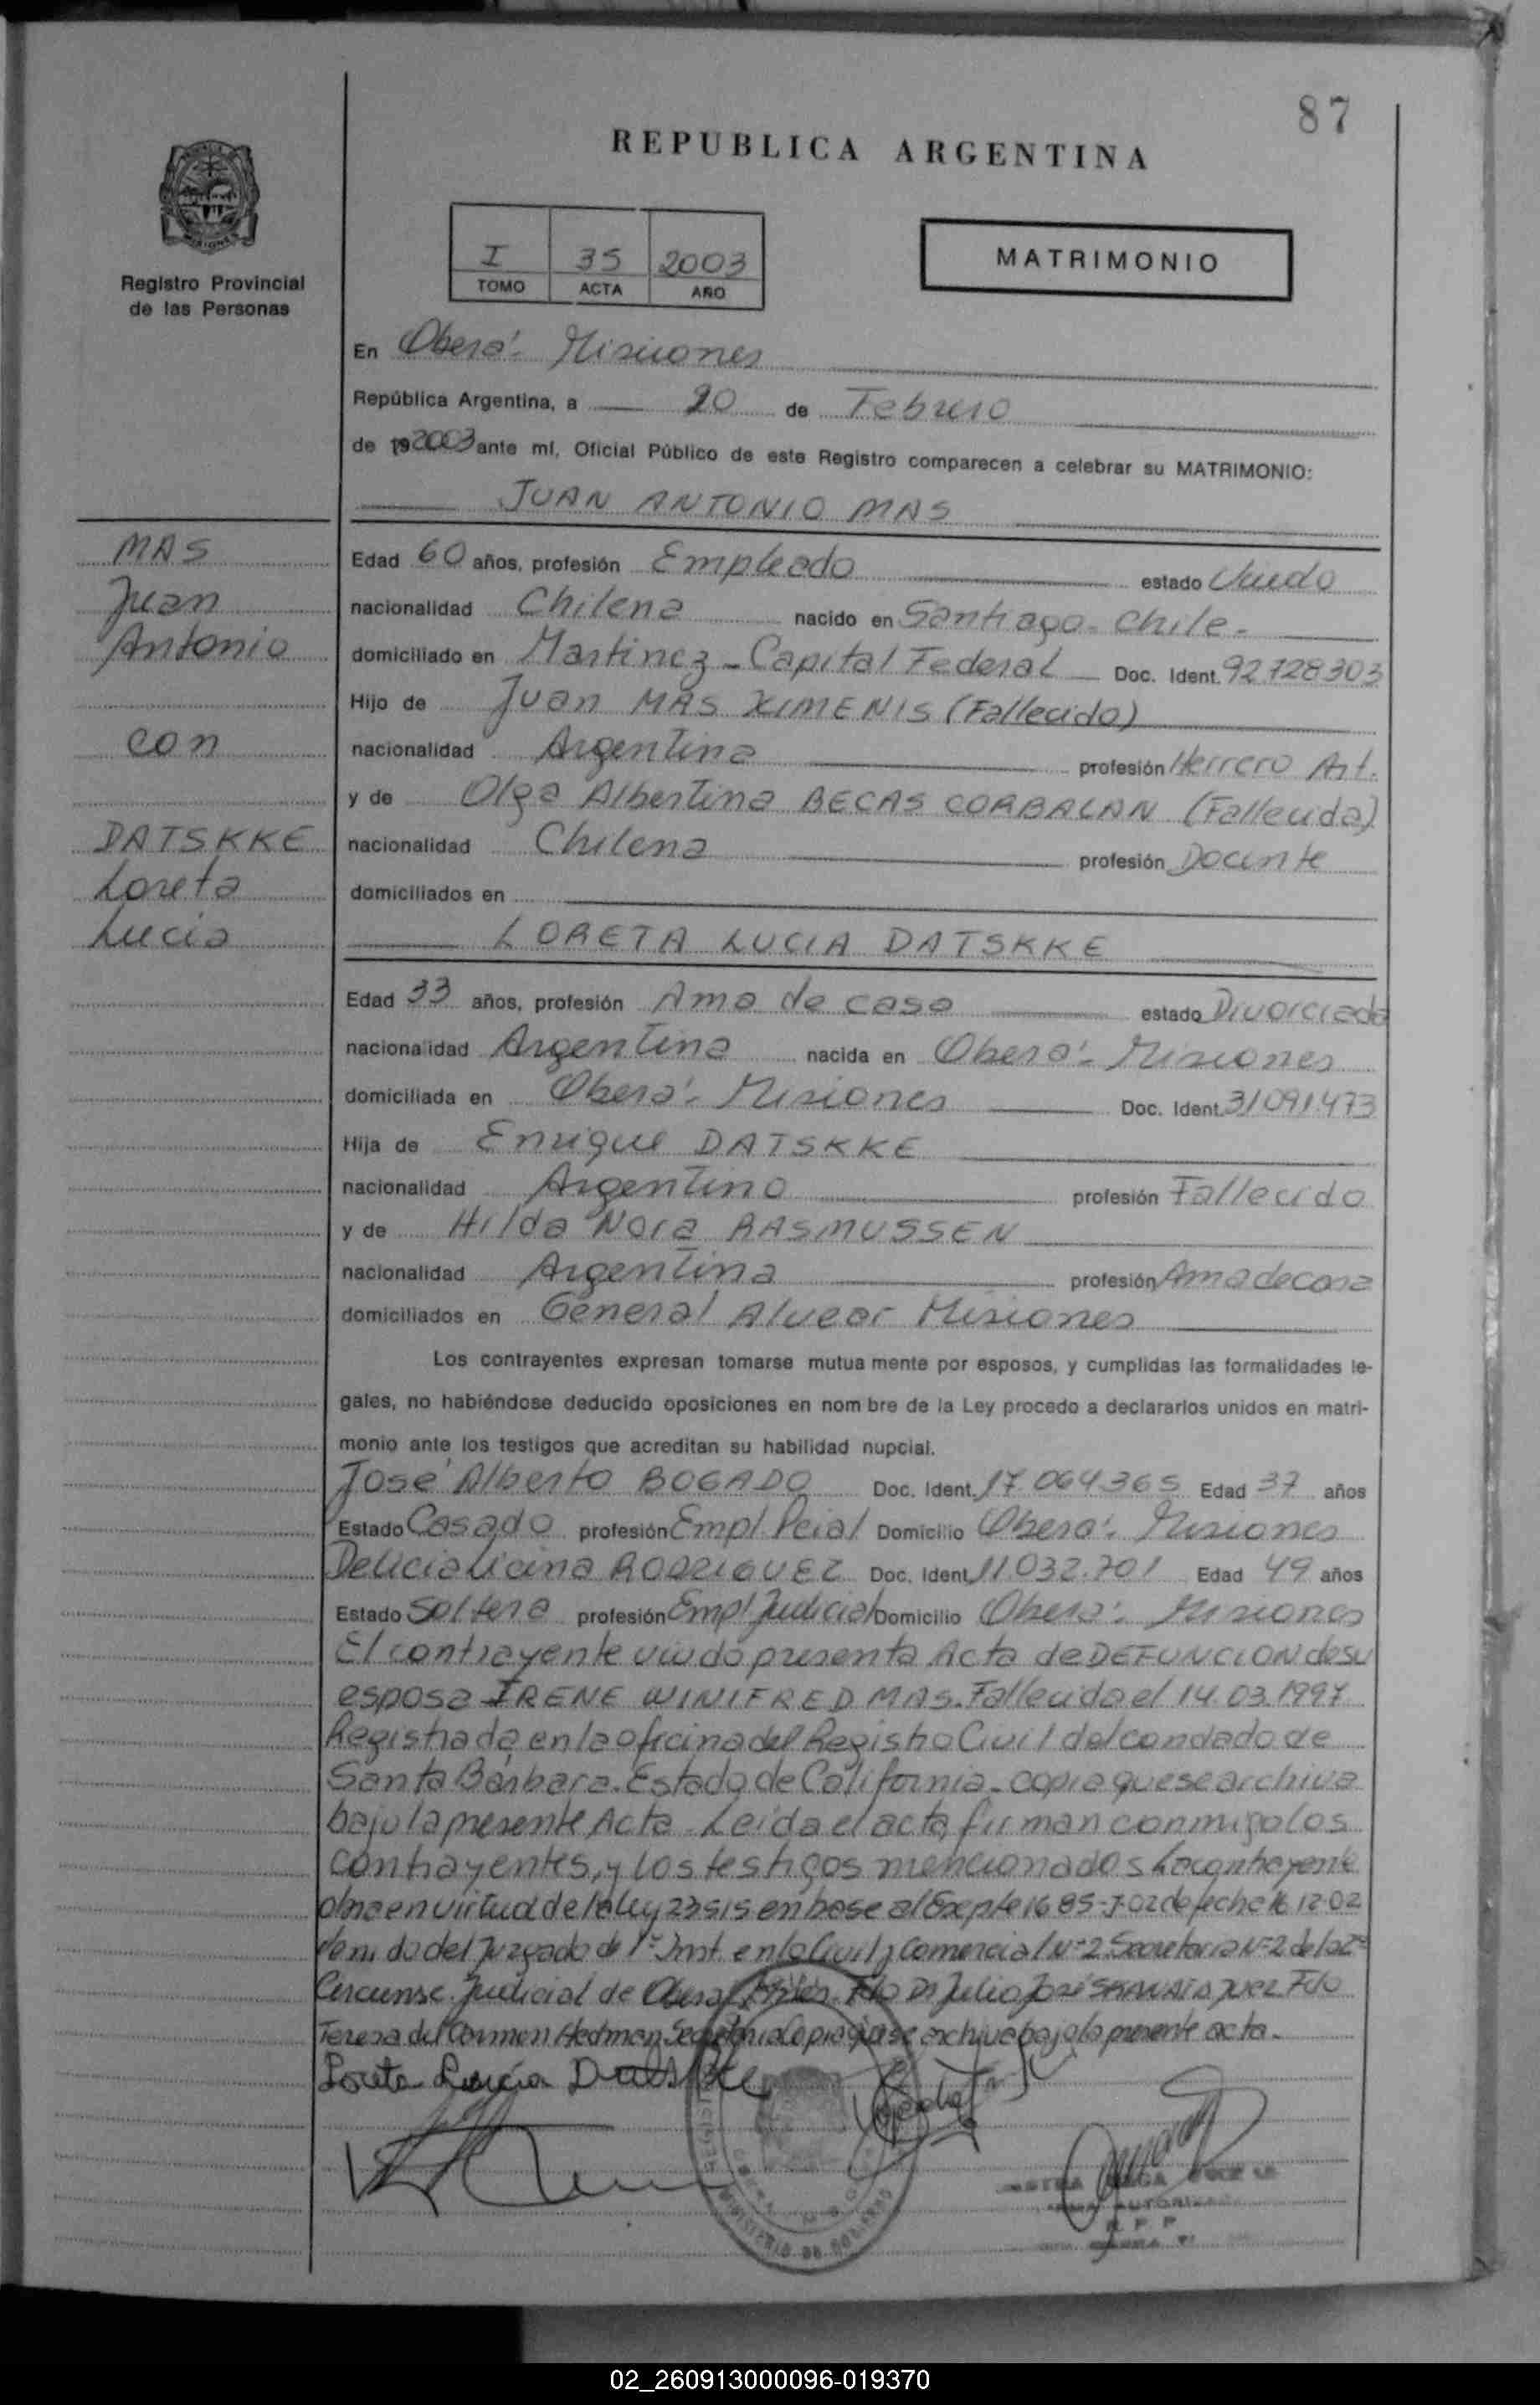 87
REPUBLICA ARGENTINA
I 35 2003
TOMO ACTA AÑO
MATRIMONIO
Registro Provincial
de las Personas
En Oberá - Misiones
República Argentina, a 20 de Febrero
de 19 2003 ante mí, Oficial Público de este Registro comparecen a celebrar su MATRIMONIO:
JUAN ANTONIO MAS
MAS
Juan
Antonio
con
DATSKKE
Loreta
Lucia
Edad 60 años, profesión Empleado estado Viudo
nacionalidad Chilena nacido en Santiago - Chile -
domiciliado en Martinez - Capital Federal Doc. Ident. 92.728303
Hijo de Juan MAS XIMENIS (Fallecido)
nacionalidad Argentina profesión Herrero Art.
y de Olga Albertina BECAS CORBALAN (Fallecida)
nacionalidad Chilena profesión Docente
domiciliados en
LORETA LUCIA DATSKKE
Edad 33 años, profesión Ama de casa estado Divorciada
nacionalidad Argentina nacida en Oberá - Misiones
domiciliada en Oberá - Misiones Doc. Ident. 31091473
Hija de Enrique DATSKKE
nacionalidad Argentino profesión Fallecido
y de Hilda Nora RASMUSSEN
nacionalidad Argentina profesión Ama de casa
domiciliados en General Alvear Misiones
Los contrayentes expresan tomarse mutua mente por esposos, y cumplidas las formalidades le-
gales, no habiéndose deducido oposiciones en nom bre de la Ley procedo a declararlos unidos en matri-
monio ante los testigos que acreditan su habilidad nupcial.
José Alberto BOGADO Doc. Ident. 17.064.365 Edad 37 años
Estado Casado profesión Empl Pcial Domicilio Oberá - Misiones
Delicia Licina RODRIGUEZ Doc. Ident. 11.032.701 Edad 49 años
Estado Soltera profesión Empl Judicial Domicilio Oberá - Misiones
El contrayente viudo presenta Acta de DEFUNCION de su
esposa IRENE WINIFRED MAS. Fallecida el 14.03.1997
Registrada en la oficina del Registro Civil del condado de
Santa Bárbara. Estado de California - copia que se archiva
bajo la presente Acta - Leída el acta, firman conmigo los
contrayentes, y los testigos mencionados La contrayente
obra en virtud de la ley 23515 en base al Expte 1685-J-02 de fecha 16.12.02
del Juzgado de 1ª Inst. en lo Civil y Comercial Nº 2. Secretaria Nº 2 de la 2ª
Circunsc. Judicial de Oberá Fdo Dr Julio José Juez Fdo
Teresa del Carmen Hedman Secretaria Copia que se archiva bajo la presente acta.
Loreta Lucía Datskke
02_260913000096-019370